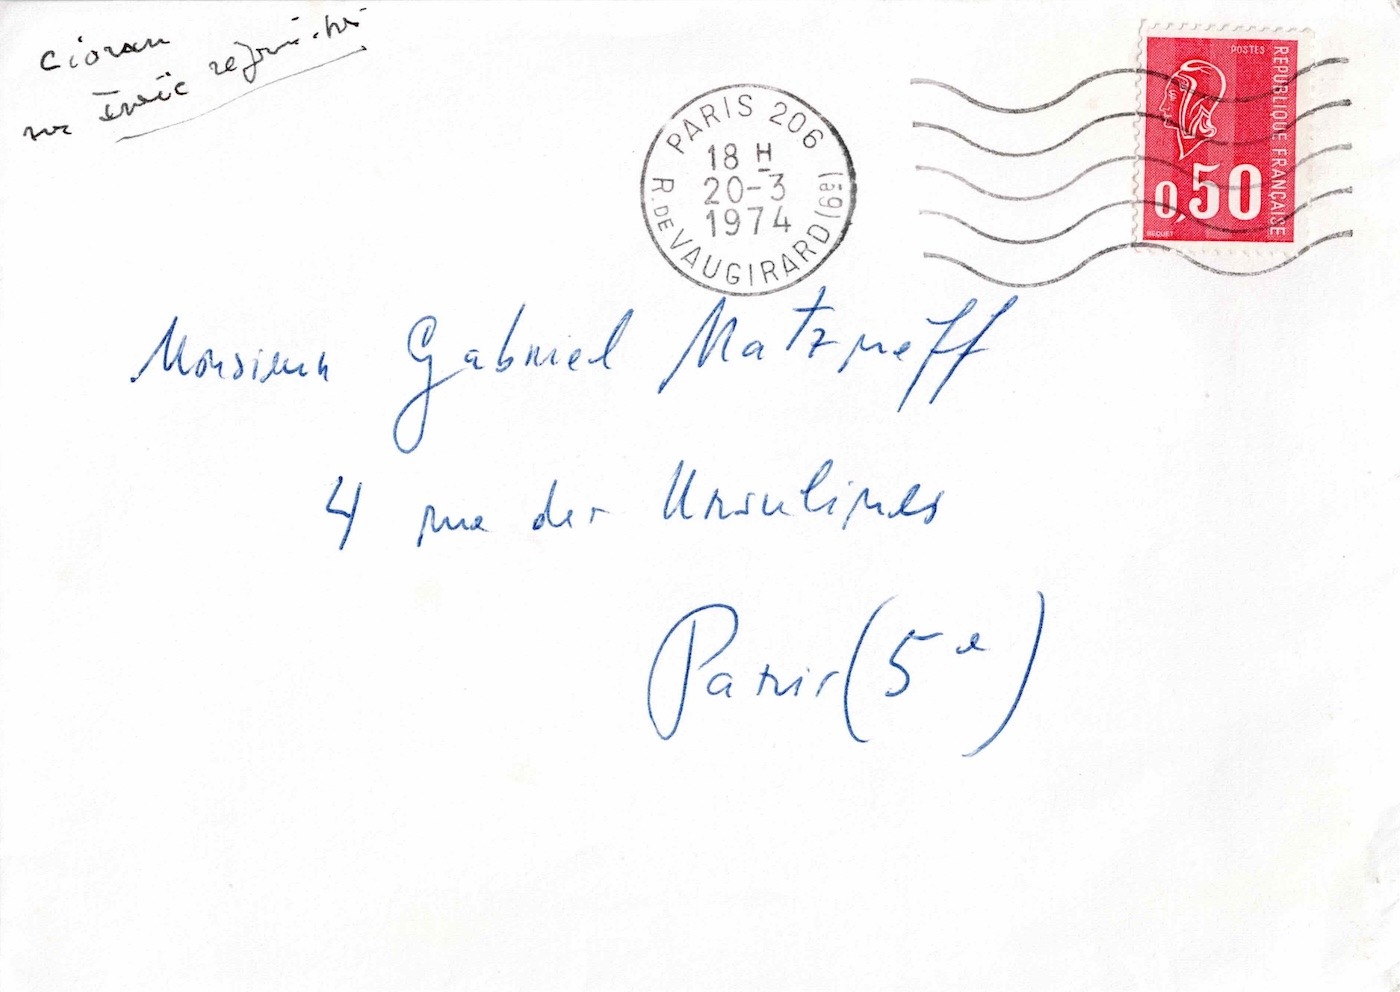 Cioran
sur Isaïe réjouis-toi
PARIS 206
18 H
20-3
1974
R. DE VAUGIRARD (6E)
POSTES
REPUBLIQUE FRANÇAISE
0,50
BEQUET
Monsieur Gabriel Matzneff
4 rue des Ursulines
Paris (5e)